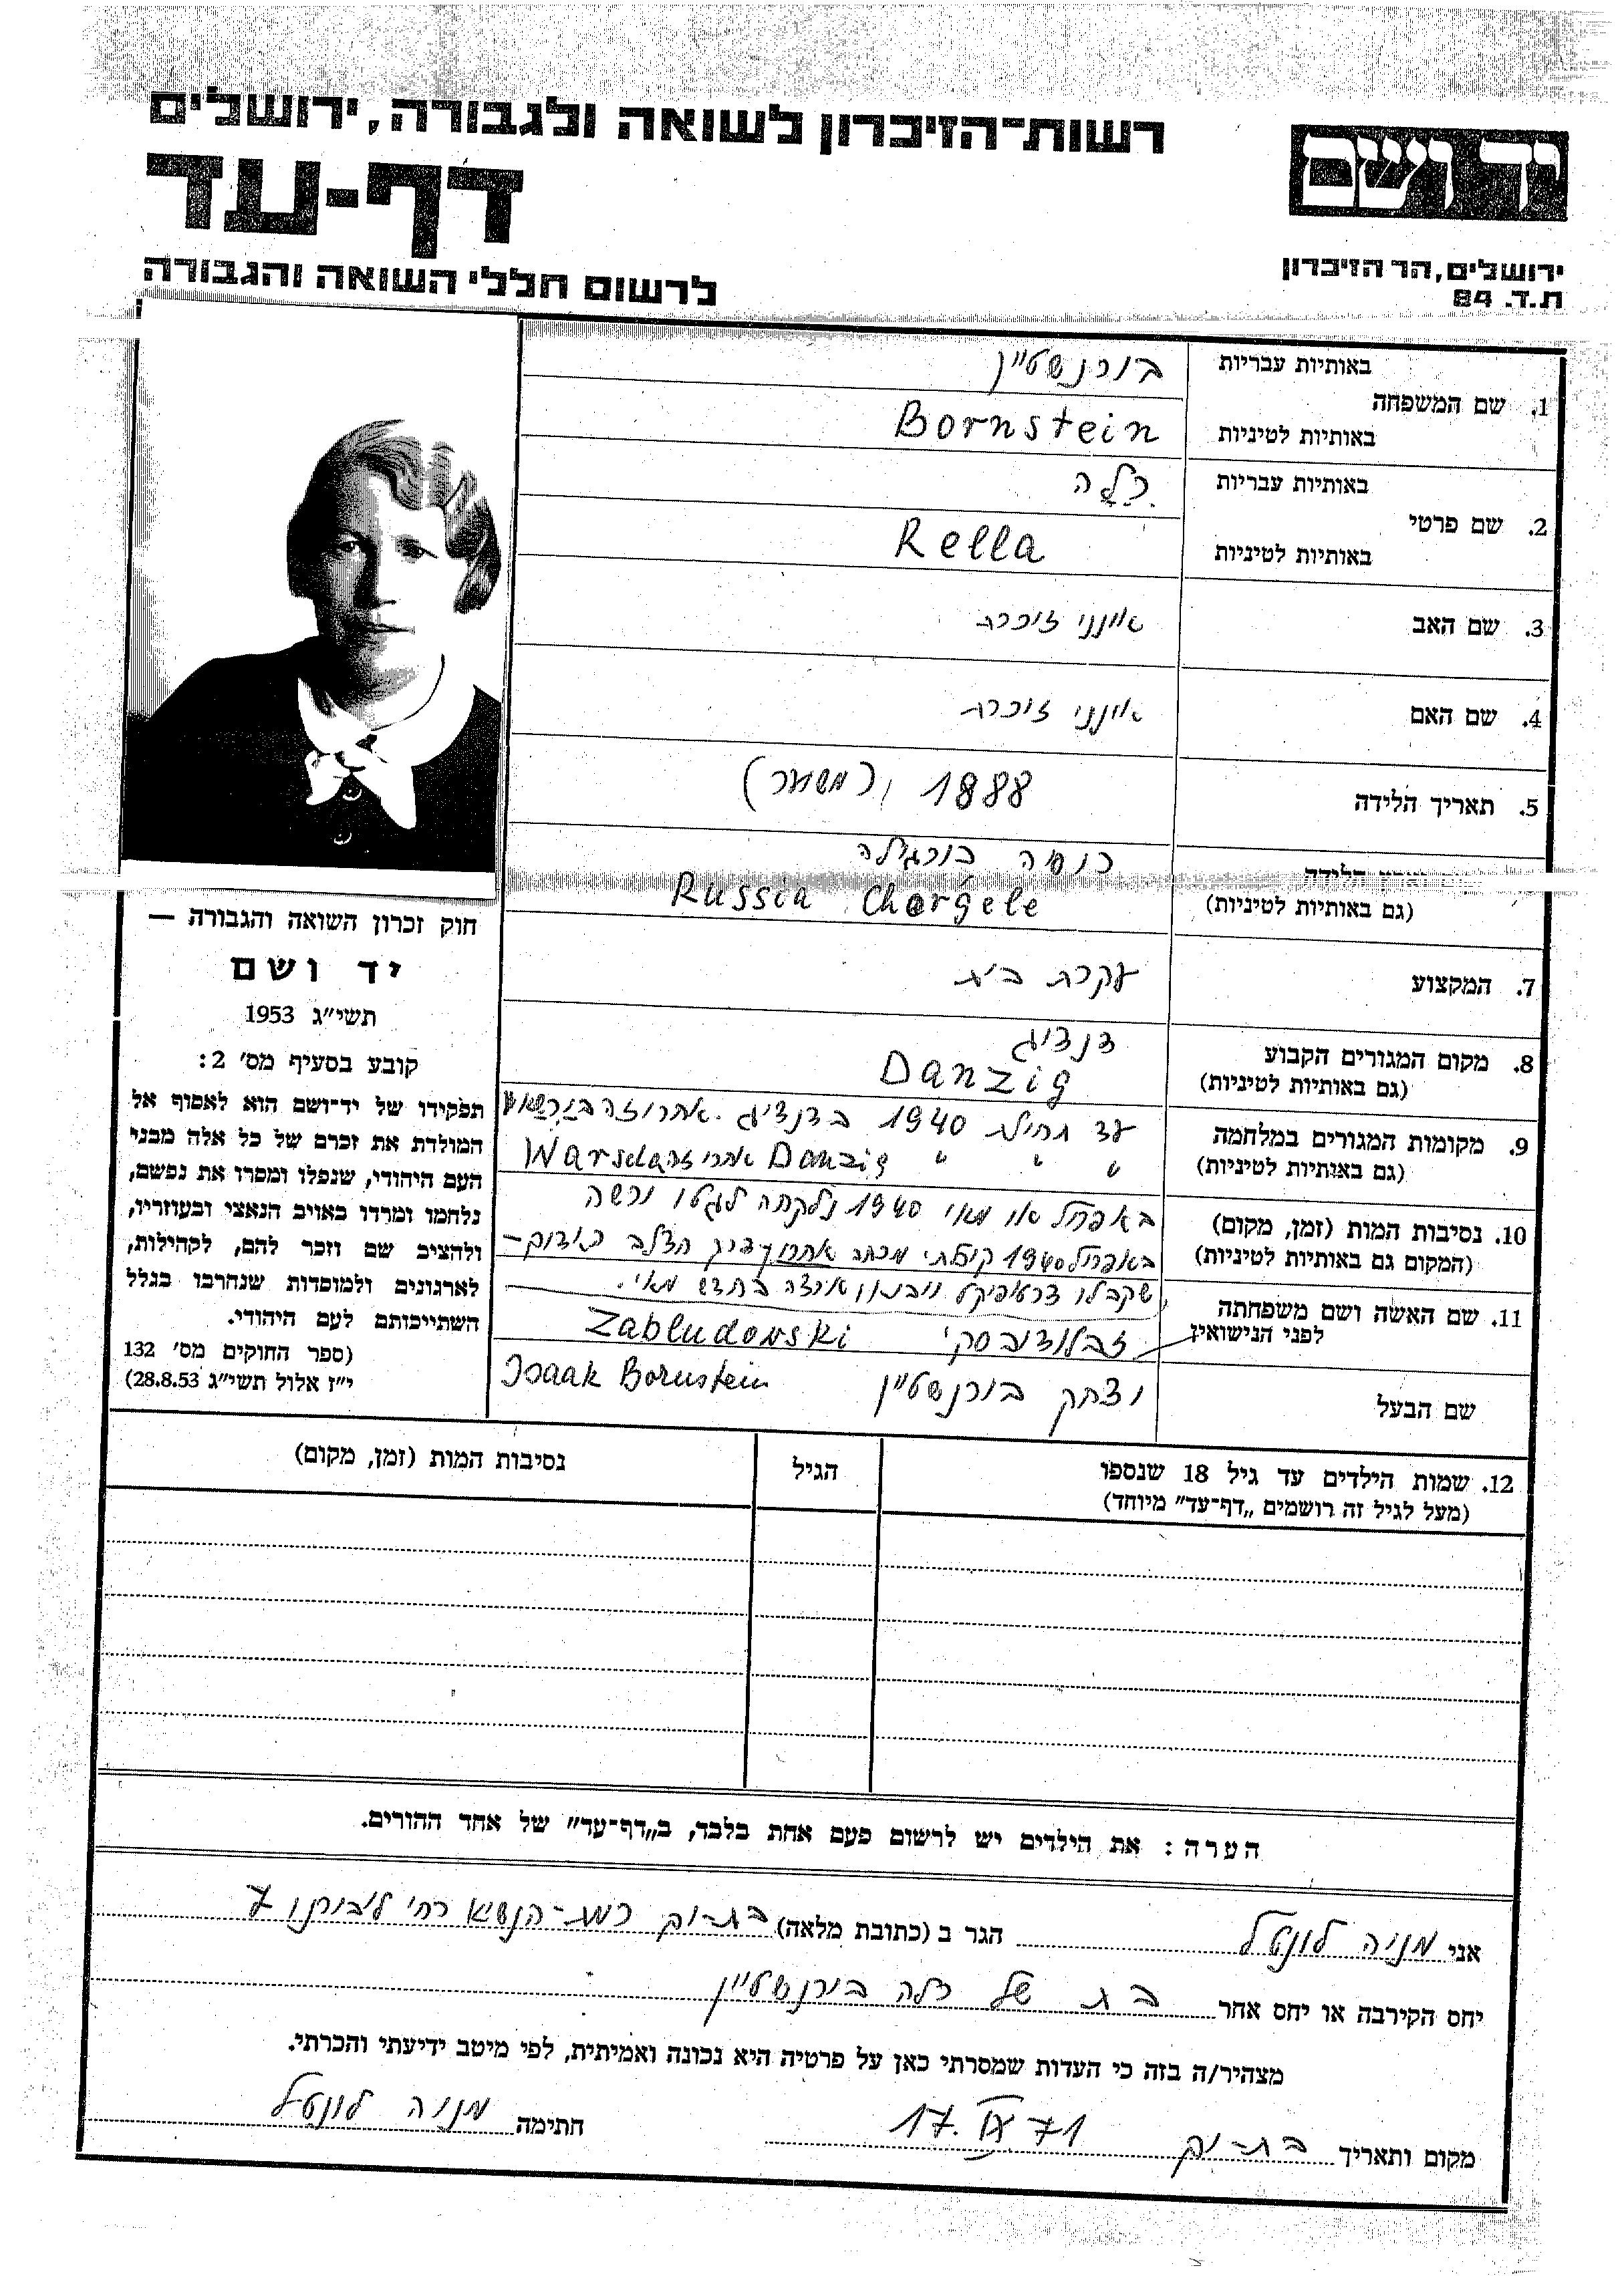 רשות־הזיכרון לשואה ולגבורה, ירושלים
יד ושם
דף-עד
לרשום חללי השואה והגבורה
ירושלים, הר הזיכרון
ת.ד. 84
באותיות עבריות בורנשטיין
1. שם המשפחה
באותיות לטיניות Bornstein
באותיות עבריות רלה
2. שם פרטי
באותיות לטיניות Rella
3. שם האב אינני זוכרת
4. שם האם אינני זוכרת
5. תאריך הלידה 1888 (משוער)
רוסיה
(גם באותיות לטיניות) Russia Chorgele
7. המקצוע עקרת בית
8. מקום המגורים הקבוע דנציג
(גם באותיות לטיניות) Danzig
9. מקומות המגורים במלחמה עד תחילת 1940 בדנציג. אחרי זה בורשא
(גם באותיות לטיניות) " " " Danzig אחרי זה Warschau
10. נסיבות המות (זמן, מקום) באפריל או מאי 1940 נלקחה לגטו ורשה
(המקום גם באותיות לטיניות) באפריל 1940 קיבלתי מכתב אחרון דרך הצלב האדום–
שקבלו צרטיפיקט בחדש מאי.
11. שם האשה ושם משפחתה
לפני הנישואין זבלודובסקי Zabludowski
שם הבעל יצחק בורנשטיין Isaak Bornstein
חוק זכרון השואה והגבורה —
יד ושם
תשי״ג 1953
קובע בסעיף מס׳ 2:
תפקידו של יד־ושם הוא לאסוף אל
המולדת את זכרם של כל אלה מבני
העם היהודי, שנפלו ומסרו את נפשם,
נלחמו ומרדו באויב הנאצי ובעוזריו,
ולהציב שם וזכר להם, לקהילות,
לארגונים ולמוסדות שנחרבו בגלל
השתייכותם לעם היהודי.
(ספר החוקים מס׳ 132
י״ז אלול תשי״ג 28.8.53)
12. שמות הילדים עד גיל 18 שנספו הגיל נסיבות המות (זמן, מקום)
(מעל לגיל זה רושמים „דף־עד״ מיוחד)
הערה: את הילדים יש לרשום פעם אחת בלבד, ב„דף־עד״ של אחד ההורים.
אני מניה לונטל הגר ב (כתובת מלאה) בת-ים רמת-הנשיא רח׳ ליבורנו 7
יחס הקירבה או יחס אחר בת של רלה בורנשטיין
מצהיר/ה בזה כי העדות שמסרתי כאן על פרטיה היא נכונה ואמיתית, לפי מיטב ידיעתי והכרתי.
מקום ותאריך בת-ים 17. IX 71 חתימה מניה לונטל